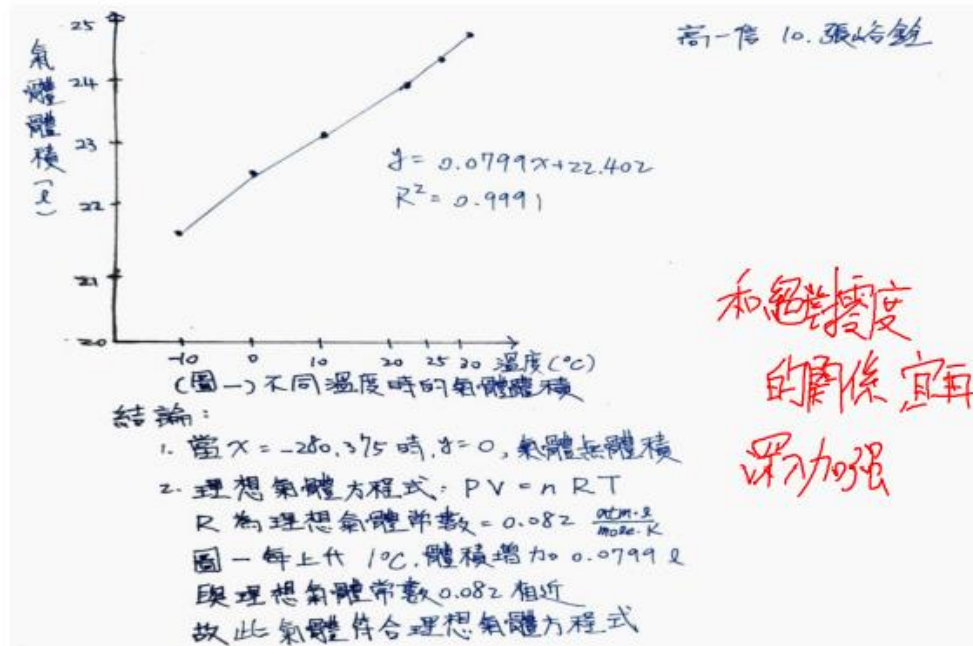 高一信 10. 張峪銓
氣體體積(ℓ)
25
24
23
22
21
20
y = 0.0799x+22.402
R² = 0.9991
-10 0 10 20 25 30 溫度(°C)
(圖一)不同溫度時的氣體體積
結論：
1. 當 x = -280.375 時, y = 0, 氣體無體積
2. 理想氣體方程式: PV = nRT
R 為理想氣體常數 = 0.082 atm·ℓ/mole·K
圖一每上升 1°C, 體積增加 0.0799 ℓ
與理想氣體常數 0.082 相近
故此氣體符合理想氣體方程式
和絕對零度
的關係宜再
深入加强